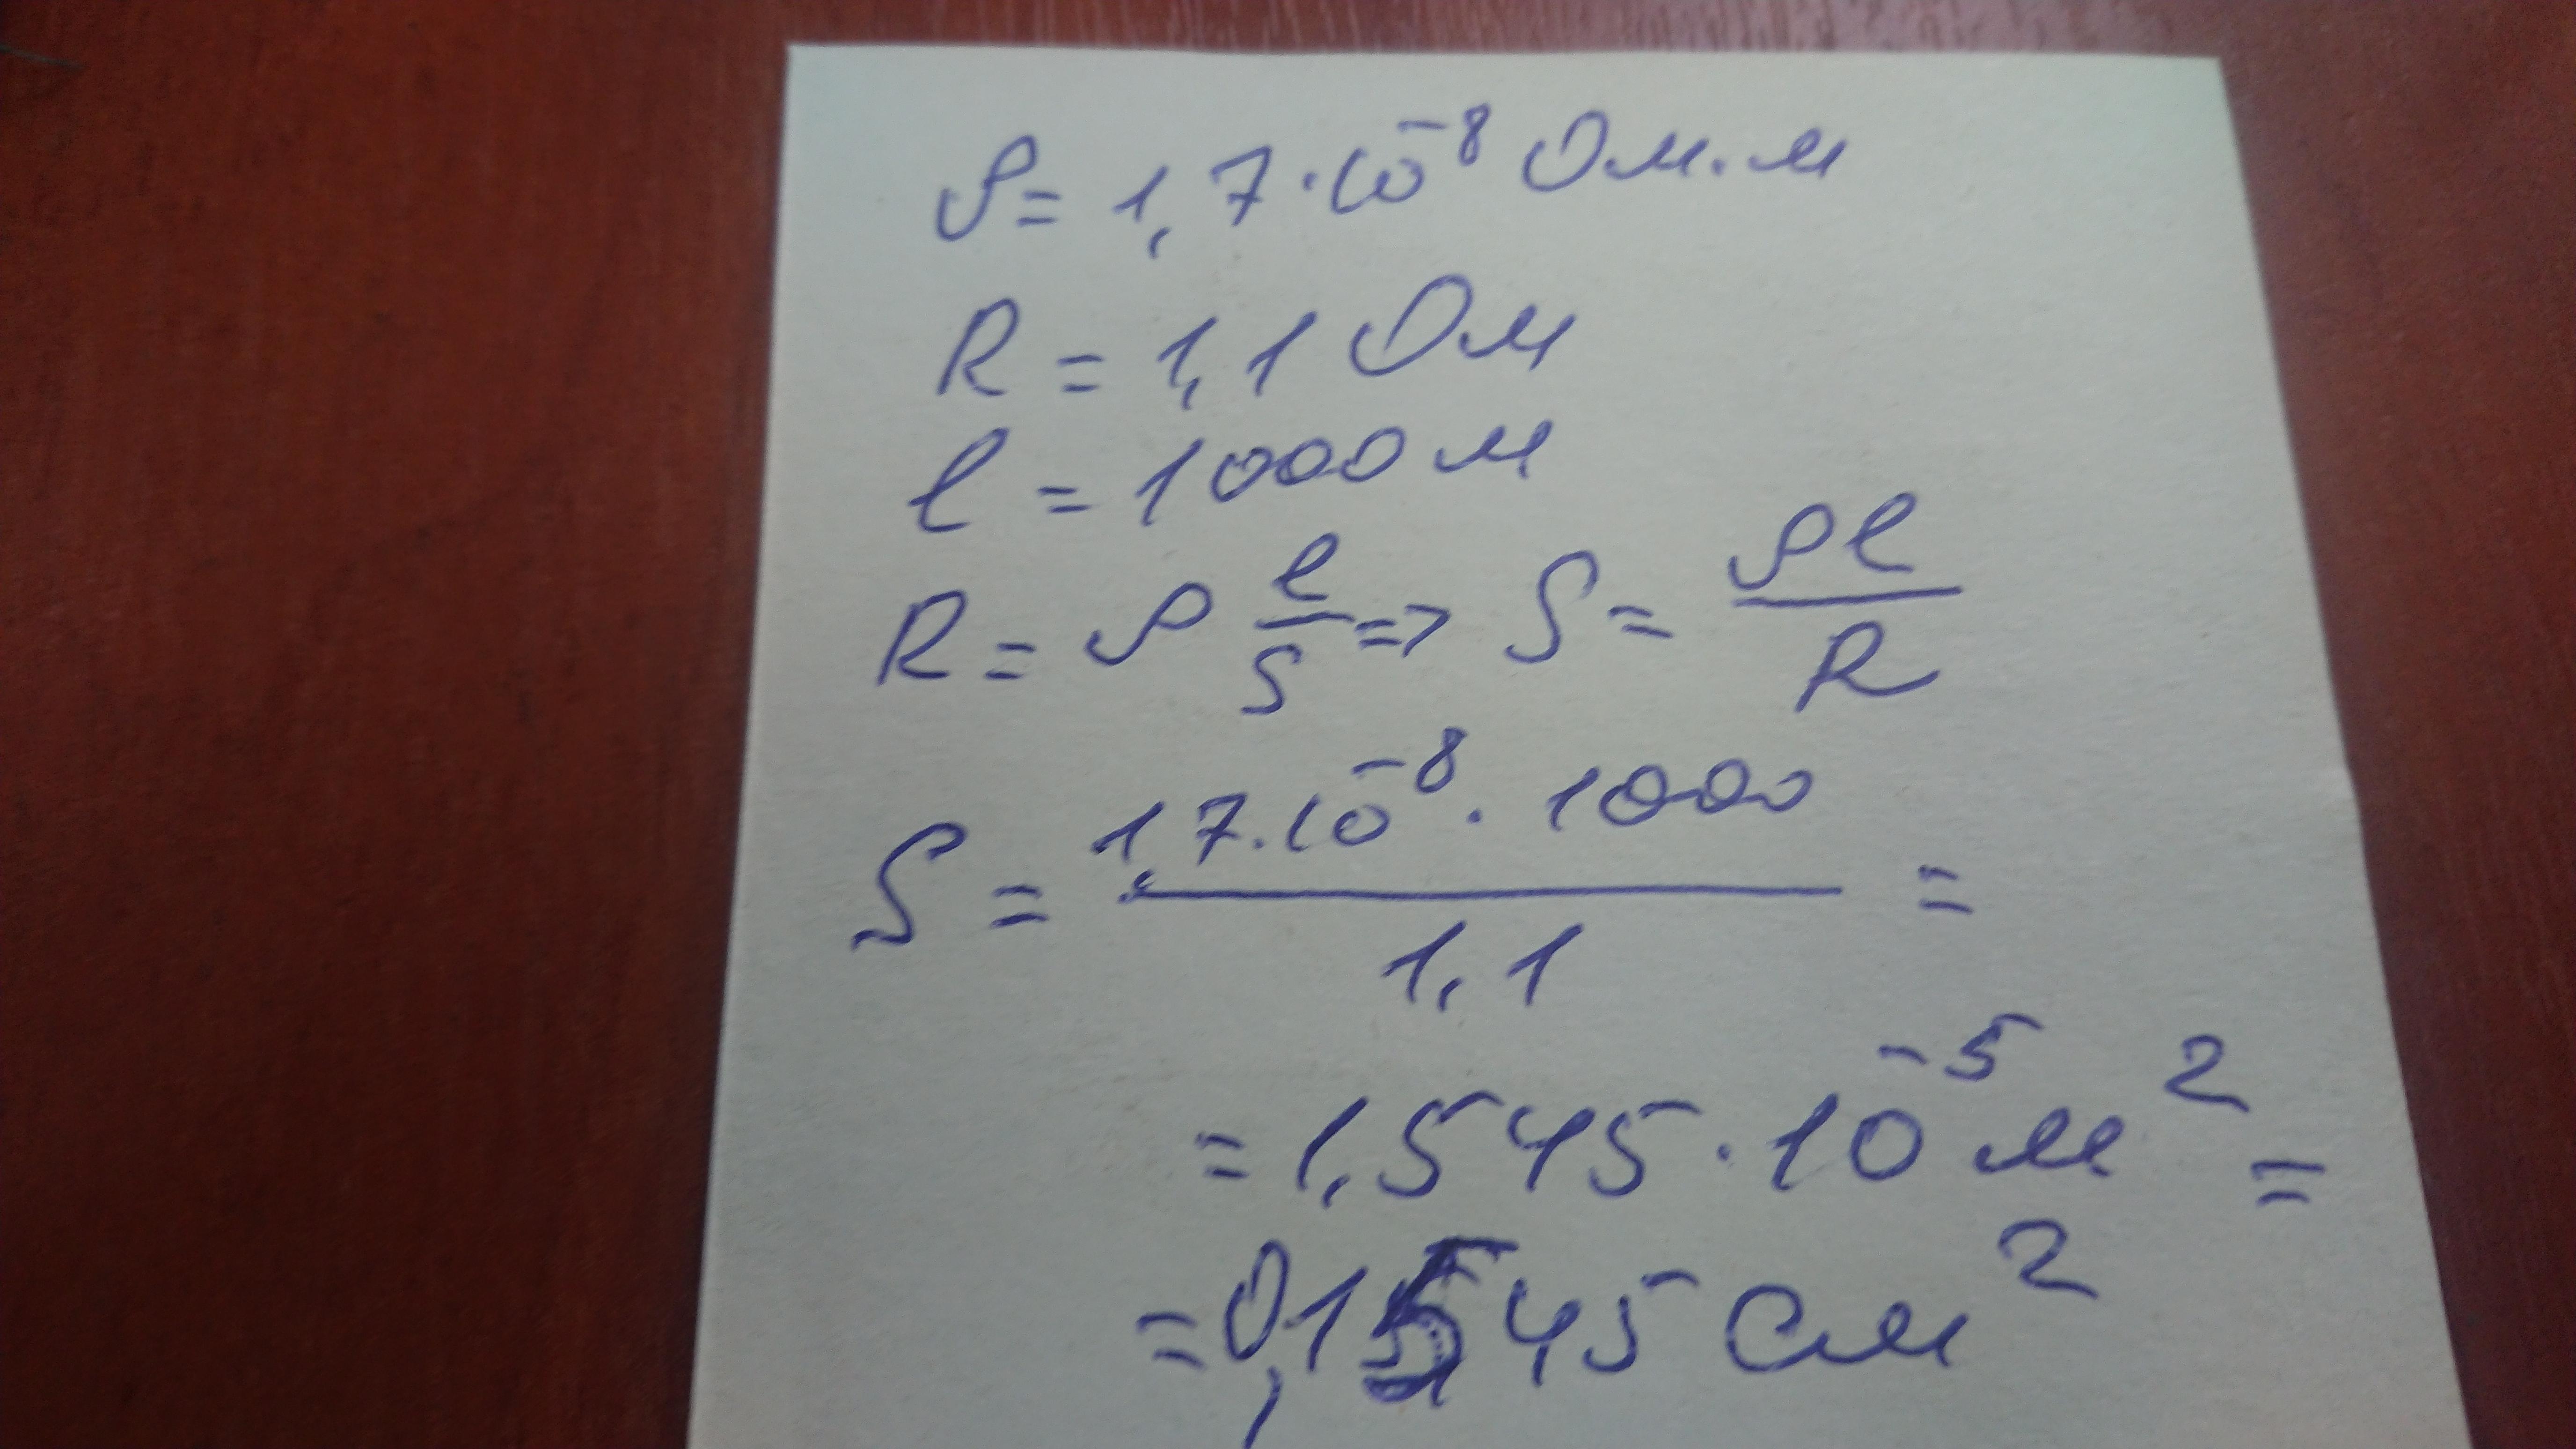 ρ = 1,7·10⁻⁸ Ом·м
R = 1,1 Ом
l = 1000 м
R = ρ l/S => S = ρl/R
S = 1,7·10⁻⁸·1000/1,1 =
= 1,545·10⁻⁵ м² =
= 0,1545 см²